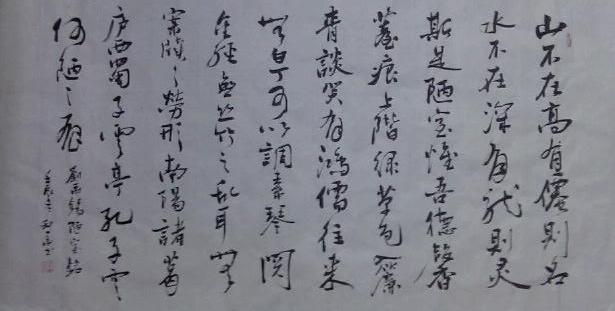 山不在高有僊则名
水不在深有龙则灵
斯是陋室惟吾德馨
苔痕上階绿草色入簾
青談笑有鴻儒往来
無白丁可以調素琴閲
金經無丝竹之乱耳無
案牍之勞形南陽諸葛
庐西蜀子雲亭孔子雲
何陋之有
劉禹錫陋室銘